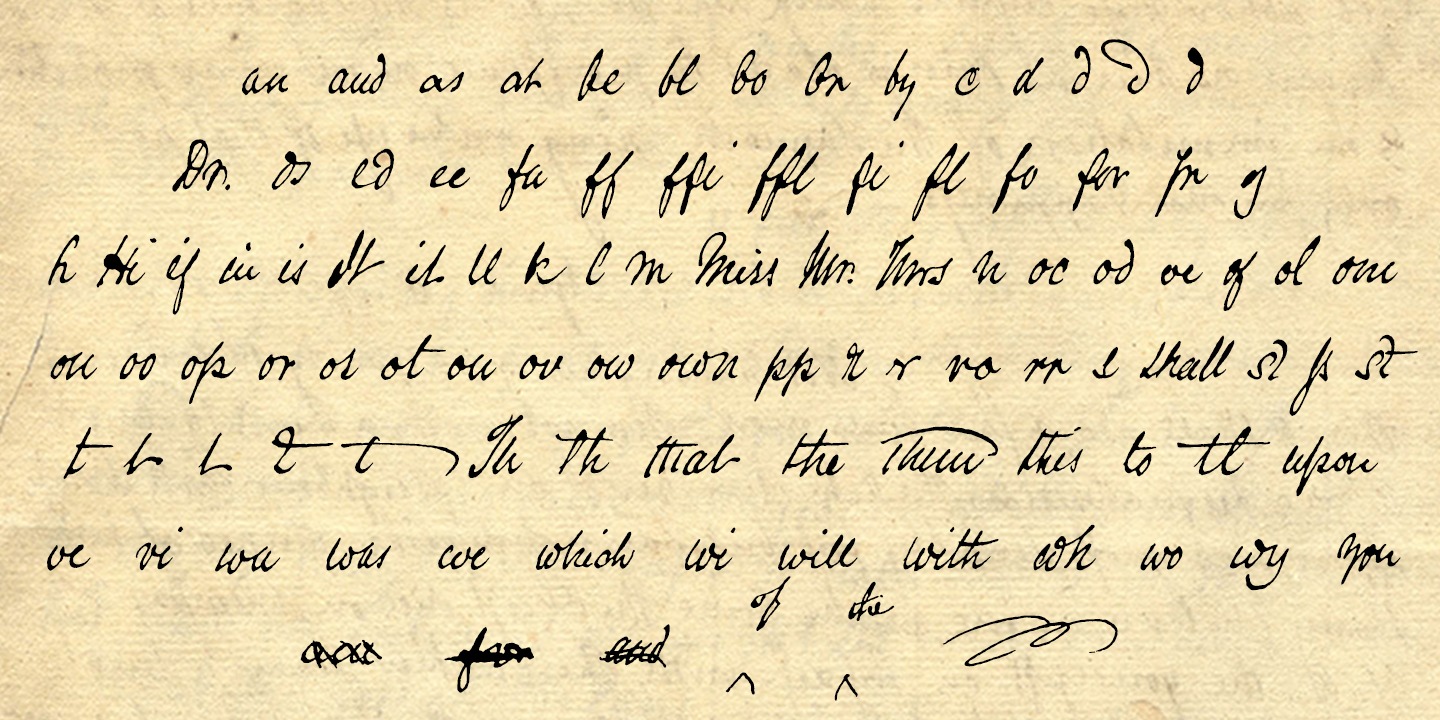 an and as at be bl bo br by c d d d d
Dr. ds ed ee fa ff ffi ffl fi fl fo for fr g
h Hi if in is It it ll k l m Miss Mr. Mrs n oc od oe of ol om
on oo op or os ot ou ov ow own pp r r ro rr s shall st ss st
t t t t t Th Th that the Them this to tt upon
ve vi wa was we which wi will with wh wo wy you
of the
for and
^ ^